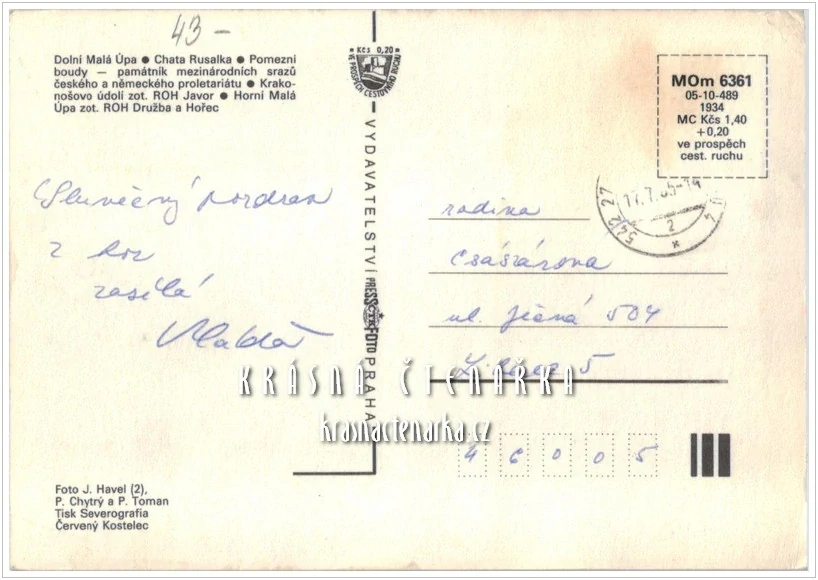 43-
Dolní Malá Úpa ● Chata Rusalka ● Pomezní
boudy — památník mezinárodních srazů
českého a německého proletariátu ● Krako-
nošovo údolí zot. ROH Javor ● Horní Malá
Úpa zot. ROH Družba a Hořec
Slunečný pozdrav
z hor
zasílá
Kčs 0,20
VE PROSPĚCH CESTOVNÍHO RUCHU
VYDAVATELSTVÍ PRESSFOTO PRAHA
MOm 6361
05-10-489
1934
MC Kčs 1,40
+0,20
ve prospěch
cest. ruchu
542 27
17.7.85-14
2
rodina
Császárova
ul. Jižná 504
Liberec 5
46005
KRÁSNÁ ČTENÁŘKA
krasnactenarka.cz
Foto J. Havel (2),
P. Chytrý a P. Toman
Tisk Severografia
Červený Kostelec